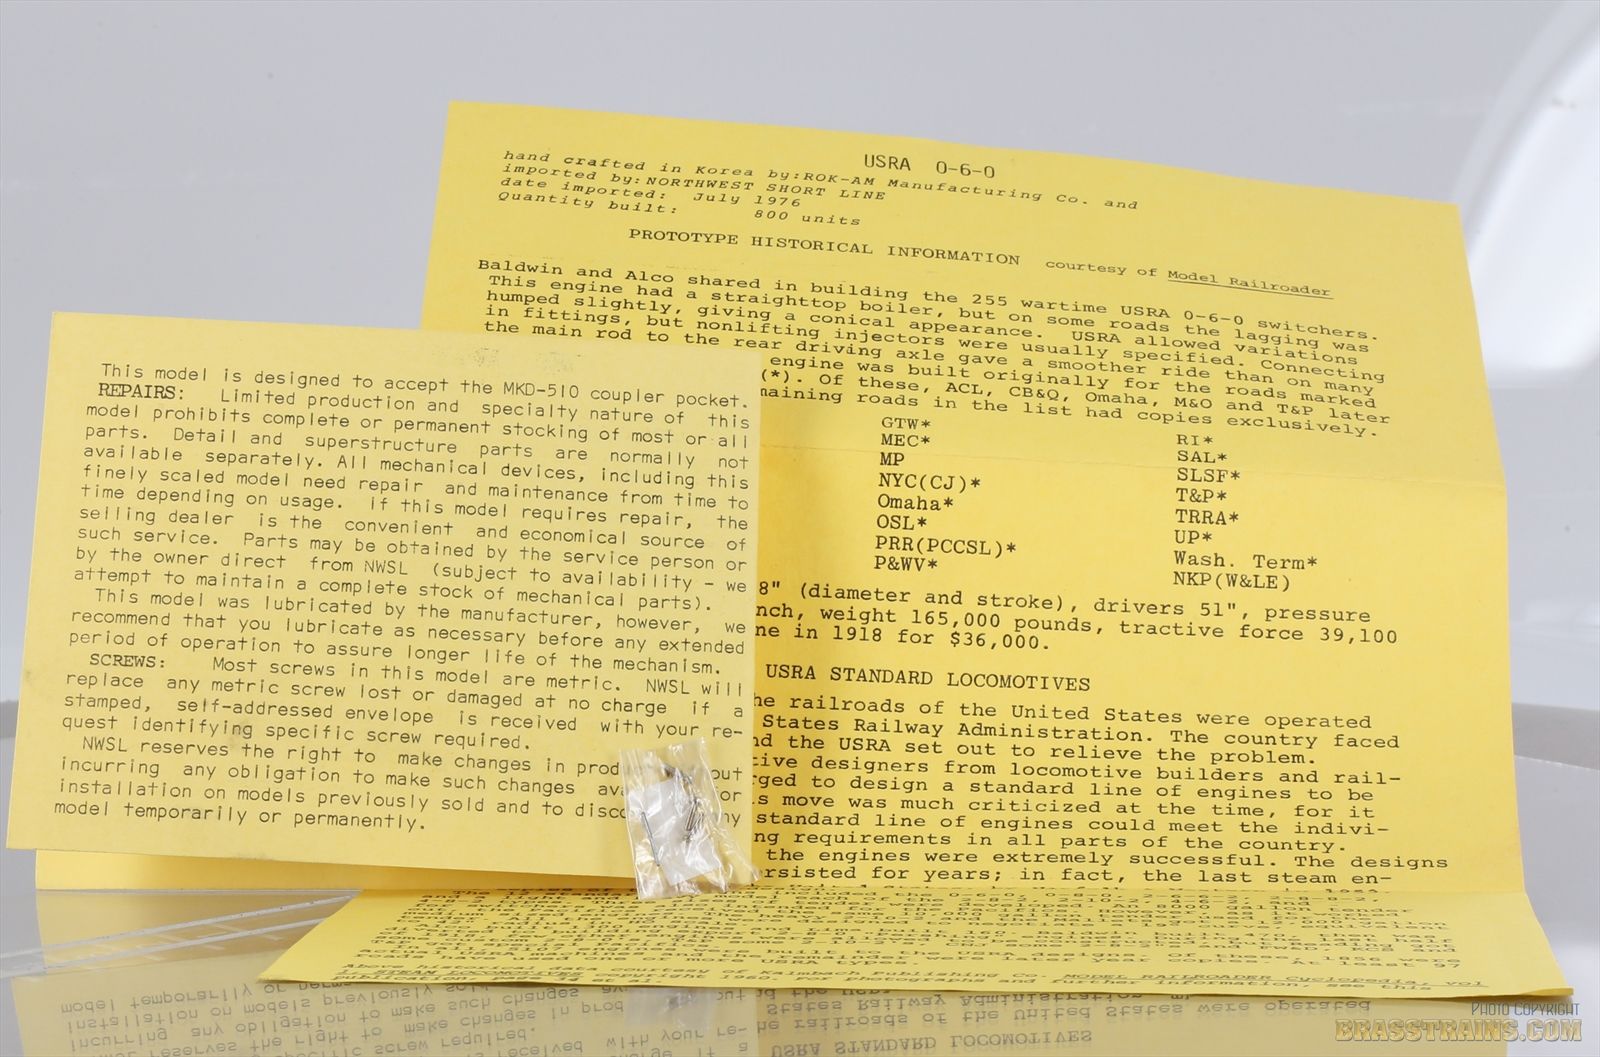 USRA 0-6-0
hand crafted in Korea by:ROK-AM Manufacturing Co. and
imported by:NORTHWEST SHORT LINE
date imported: July 1976
Quantity built: 800 units
PROTOTYPE HISTORICAL INFORMATION courtesy of Model Railroader
Baldwin and Alco shared in building the 255 wartime USRA 0-6-0 switchers.
This engine had a straighttop boiler, but on some roads the lagging was
humped slightly, giving a conical appearance. USRA allowed variations
in fittings, but nonlifting injectors were usually specified. Connecting
the main rod to the rear driving axle gave a smoother ride than on many
engine was built originally for the roads marked
(*). Of these, ACL, CB&Q, Omaha, M&O and T&P later
maining roads in the list had copies exclusively.
GTW*
MEC*
MP
NYC(CJ)*
Omaha*
OSL*
PRR(PCCSL)*
P&WV*
RI*
SAL*
SLSF*
T&P*
TRRA*
UP*
Wash. Term*
NKP(W&LE)
8" (diameter and stroke), drivers 51", pressure
nch, weight 165,000 pounds, tractive force 39,100
ne in 1918 for $36,000.
USRA STANDARD LOCOMOTIVES
he railroads of the United States were operated
States Railway Administration. The country faced
nd the USRA set out to relieve the problem.
tive designers from locomotive builders and rail-
rged to design a standard line of engines to be
s move was much criticized at the time, for it
standard line of engines could meet the indivi-
ng requirements in all parts of the country.
the engines were extremely successful. The designs
rsisted for years; in fact, the last steam en-
This model is designed to accept the MKD-510 coupler pocket.
REPAIRS: Limited production and specialty nature of this
model prohibits complete or permanent stocking of most or all
parts. Detail and superstructure parts are normally not
available separately. All mechanical devices, including this
finely scaled model need repair and maintenance from time to
time depending on usage. If this model requires repair, the
selling dealer is the convenient and economical source of
such service. Parts may be obtained by the service person or
by the owner direct from NWSL (subject to availability - we
attempt to maintain a complete stock of mechanical parts).
This model was lubricated by the manufacturer, however, we
recommend that you lubricate as necessary before any extended
period of operation to assure longer life of the mechanism.
SCREWS: Most screws in this model are metric. NWSL will
replace any metric screw lost or damaged at no charge if a
stamped, self-addressed envelope is received with your re-
quest identifying specific screw required.
NWSL reserves the right to make changes in prod out
incurring any obligation to make such changes ava for
installation on models previously sold and to disco ny
model temporarily or permanently.
Above historical data courtesy of Kalmbach Publishing Co. MODEL RAILROADER Cyclopedia, vol
1, STEAM LOCOMOTIVES copyright 1960. For photographs and further information, see this
publication.
PHOTO COPYRIGHT
BRASSTRAINS.COM